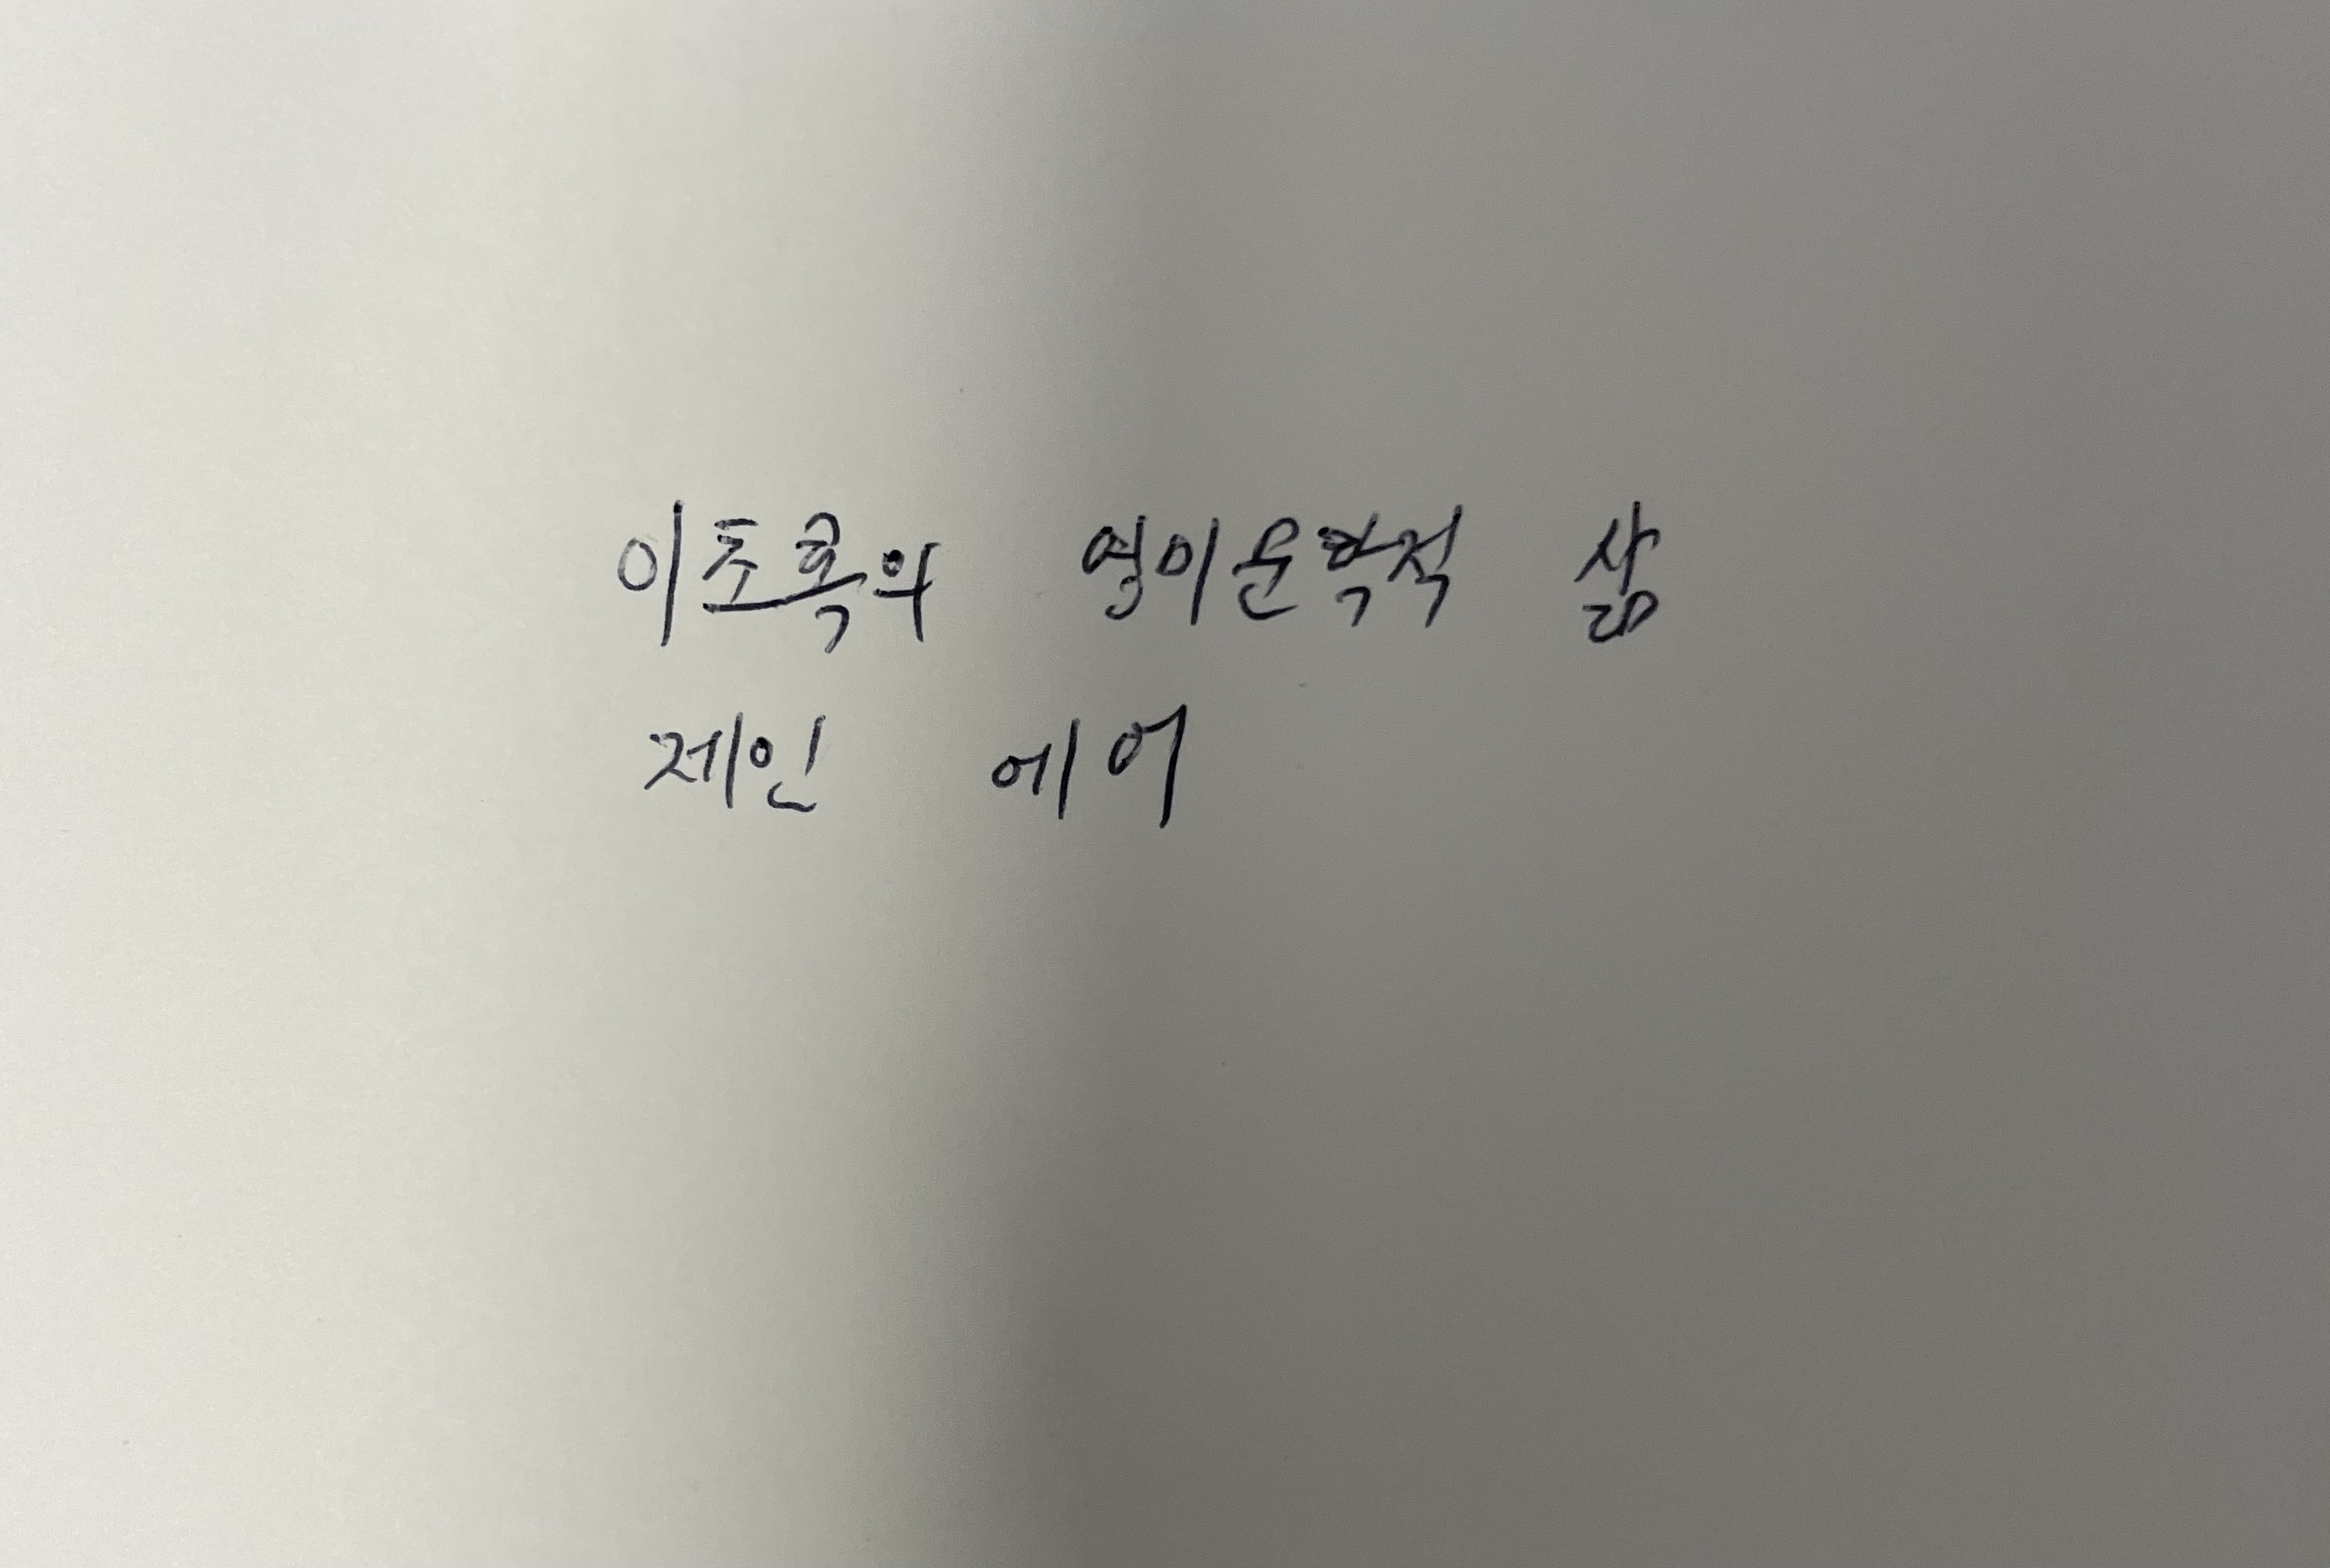 이초록의 영미문학적 삶
제인 에어